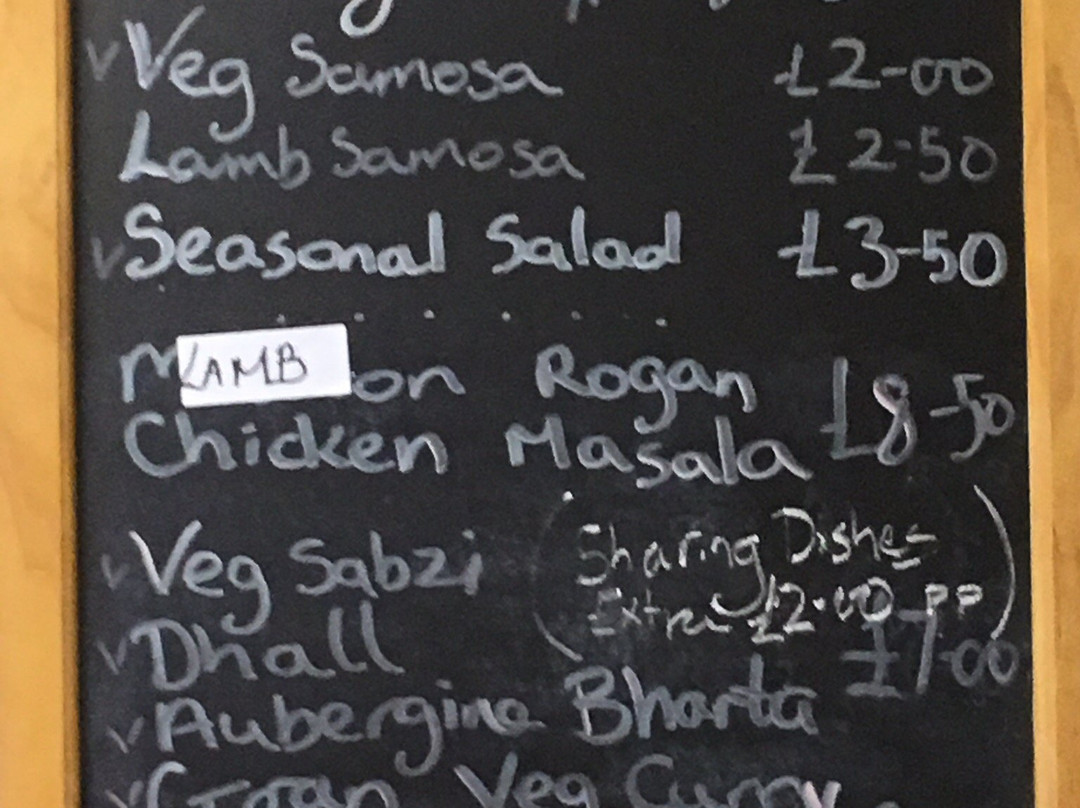 v Veg Samosa £2-00
Lamb Samosa £2-50
v Seasonal Salad £3-50
M LAMB on Rogan
Chicken Masala £8-50
v Veg Sabzi (Sharing Dishes
Extra £2.00 PP)
v Dhall £7-00
v Aubergine Bharta
v Goan Veg Curry